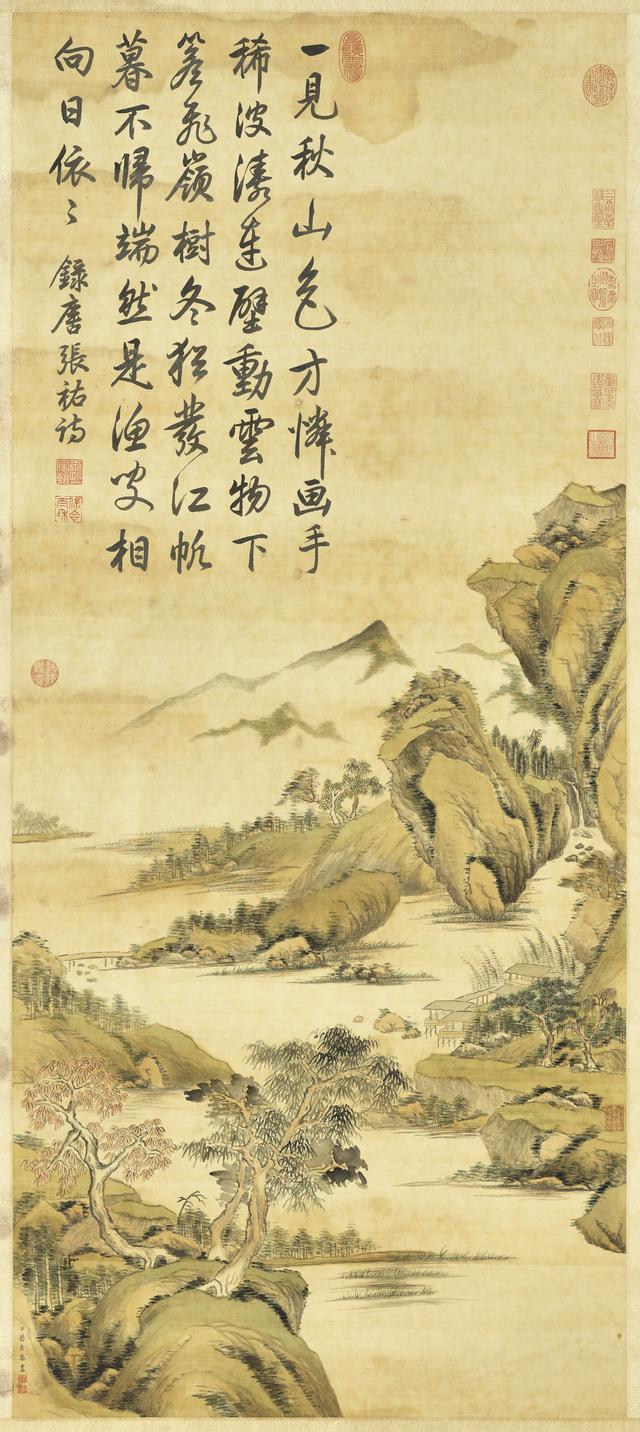 一見秋山色方憐画手
稀波濤連壁動雲物下
簷飛嶺樹冬猶發江帆
暮不歸端然是漁叟相
向日依〻 錄唐張祐詩